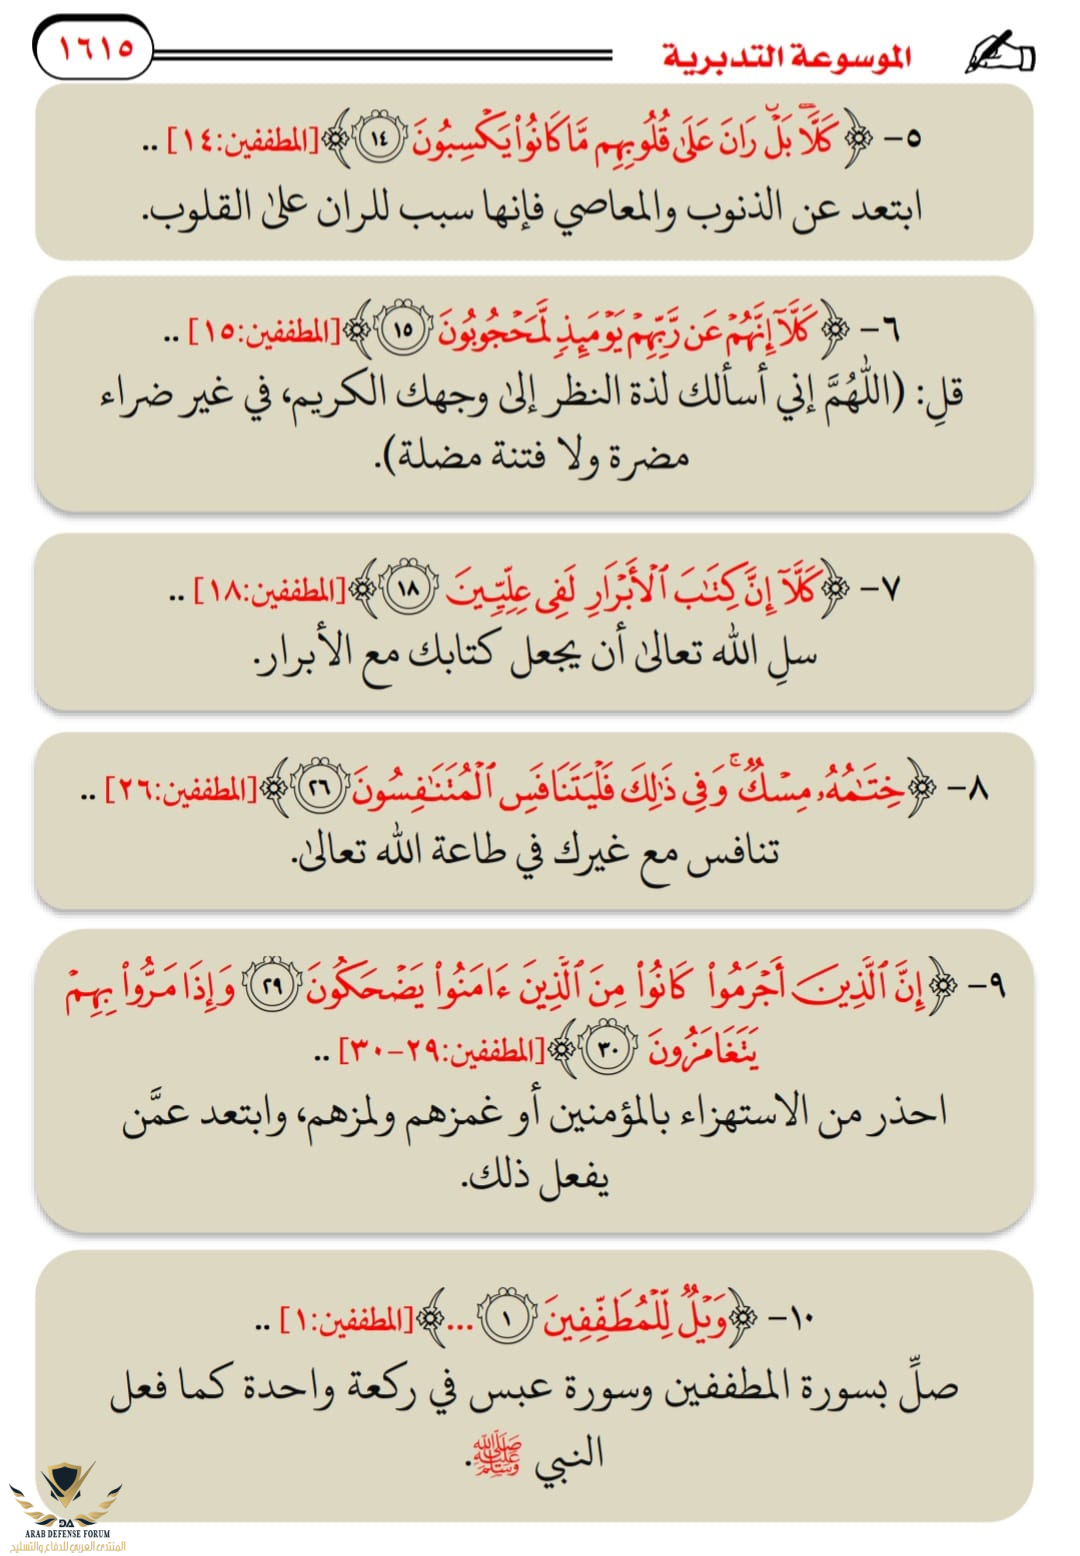 الموسوعة التدبرية
١٦١٥
٥- ﴿كَلَّا ۖ بَلْ ۜ رَانَ عَلَىٰ قُلُوبِهِم مَّا كَانُوا۟ يَكْسِبُونَ ١٤﴾ [المطففين:١٤] ..
ابتعد عن الذنوب والمعاصي فإنها سبب للران علىٰ القلوب.
٦- ﴿كَلَّآ إِنَّهُمْ عَن رَّبِّهِمْ يَوْمَئِذٍ لَّمَحْجُوبُونَ ١٥﴾ [المطففين:١٥] ..
قلِ: (اللهُمَّ إني أسألك لذة النظر إلىٰ وجهك الكريم، في غير ضراء
مضرة ولا فتنة مضلة).
٧- ﴿كَلَّآ إِنَّ كِتَٰبَ ٱلْأَبْرَارِ لَفِى عِلِّيِّينَ ١٨﴾ [المطففين:١٨] ..
سلِ الله تعالىٰ أن يجعل كتابك مع الأبرار.
٨- ﴿خِتَٰمُهُۥ مِسْكٌ ۚ وَفِى ذَٰلِكَ فَلْيَتَنَافَسِ ٱلْمُتَنَٰفِسُونَ ٢٦﴾ [المطففين:٢٦] ..
تنافس مع غيرك في طاعة الله تعالىٰ.
٩- ﴿إِنَّ ٱلَّذِينَ أَجْرَمُوا۟ كَانُوا۟ مِنَ ٱلَّذِينَ ءَامَنُوا۟ يَضْحَكُونَ ٢٩ وَإِذَا مَرُّوا۟ بِهِمْ
يَتَغَامَزُونَ ٣٠﴾ [المطففين:٢٩-٣٠] ..
احذر من الاستهزاء بالمؤمنين أو غمزهم ولمزهم، وابتعد عمَّن
يفعل ذلك.
١٠- ﴿وَيْلٌ لِّلْمُطَفِّفِينَ ١ ...﴾ [المطففين:١] ..
صلِّ بسورة المطففين وسورة عبس في ركعة واحدة كما فعل
النبي ﷺ.
DA
ARAB DEFENSE FORUM
المنتدى العربي للدفاع والتسليح